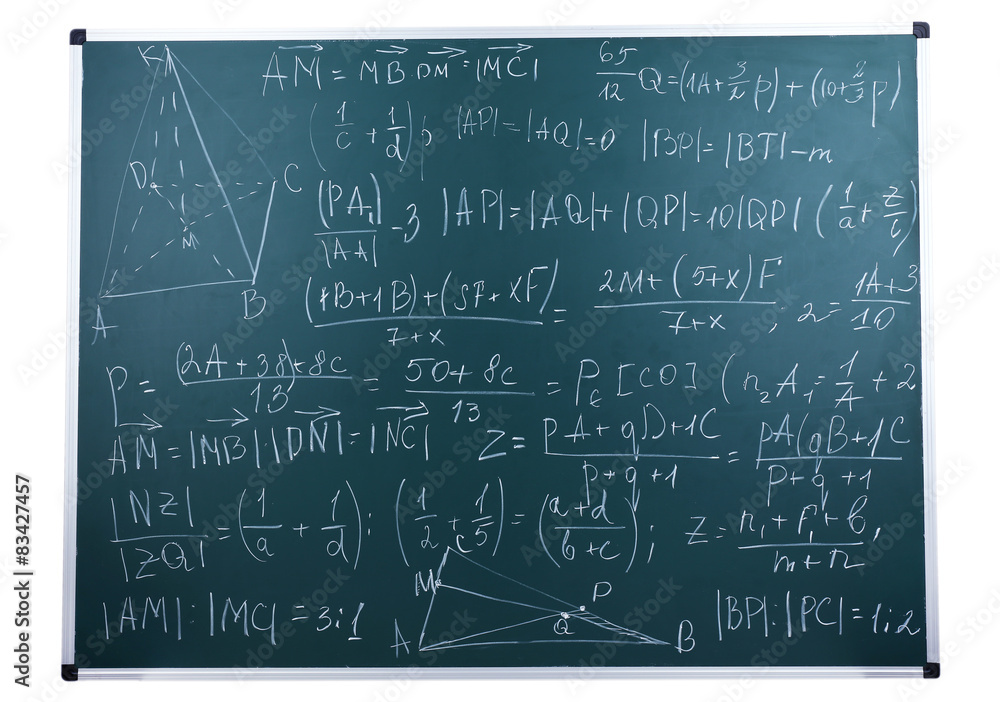 K
AM = MB · DM = |MC|
65/12 Q = (1A + 3/2 p) + (10 + 2/3 p)
(1/c + 1/d);
|AP| = |AQ| = 0
|BP| = |BT| - m
D
C
M
A
B
(PA₁)/|AA| - 3
|AP| = |AQ| + |QP| = 10|QP|
(1/a + z/c)
((1B + 1B) + (5F + XF))/(7 + x) = (2M + (5 + x)F)/(7 + x); 2 = (1A + 3)/10
P = ((2A + 38) + 8c)/13 = (50 + 8c)/13 = P_c [CO] (n₂A₁ = 1/A + 2
AM = |MB| · |DN| = |NC|
Z = (pA + qD + 1C)/(p + q + 1) = (pA(qB + 1C)/(p + q + 1)
|NZ|/|ZQ| = (1/a + 1/d);
(1/2 + 1/5) = (a + d)/(b + c);
Z = (n₁ + F₁ + b)/(m + n),
|AM| : |MC| = 3:1
C
M
P
Q
A
B
|BP| : |PC| = 1:2
Adobe Stock | #83427457